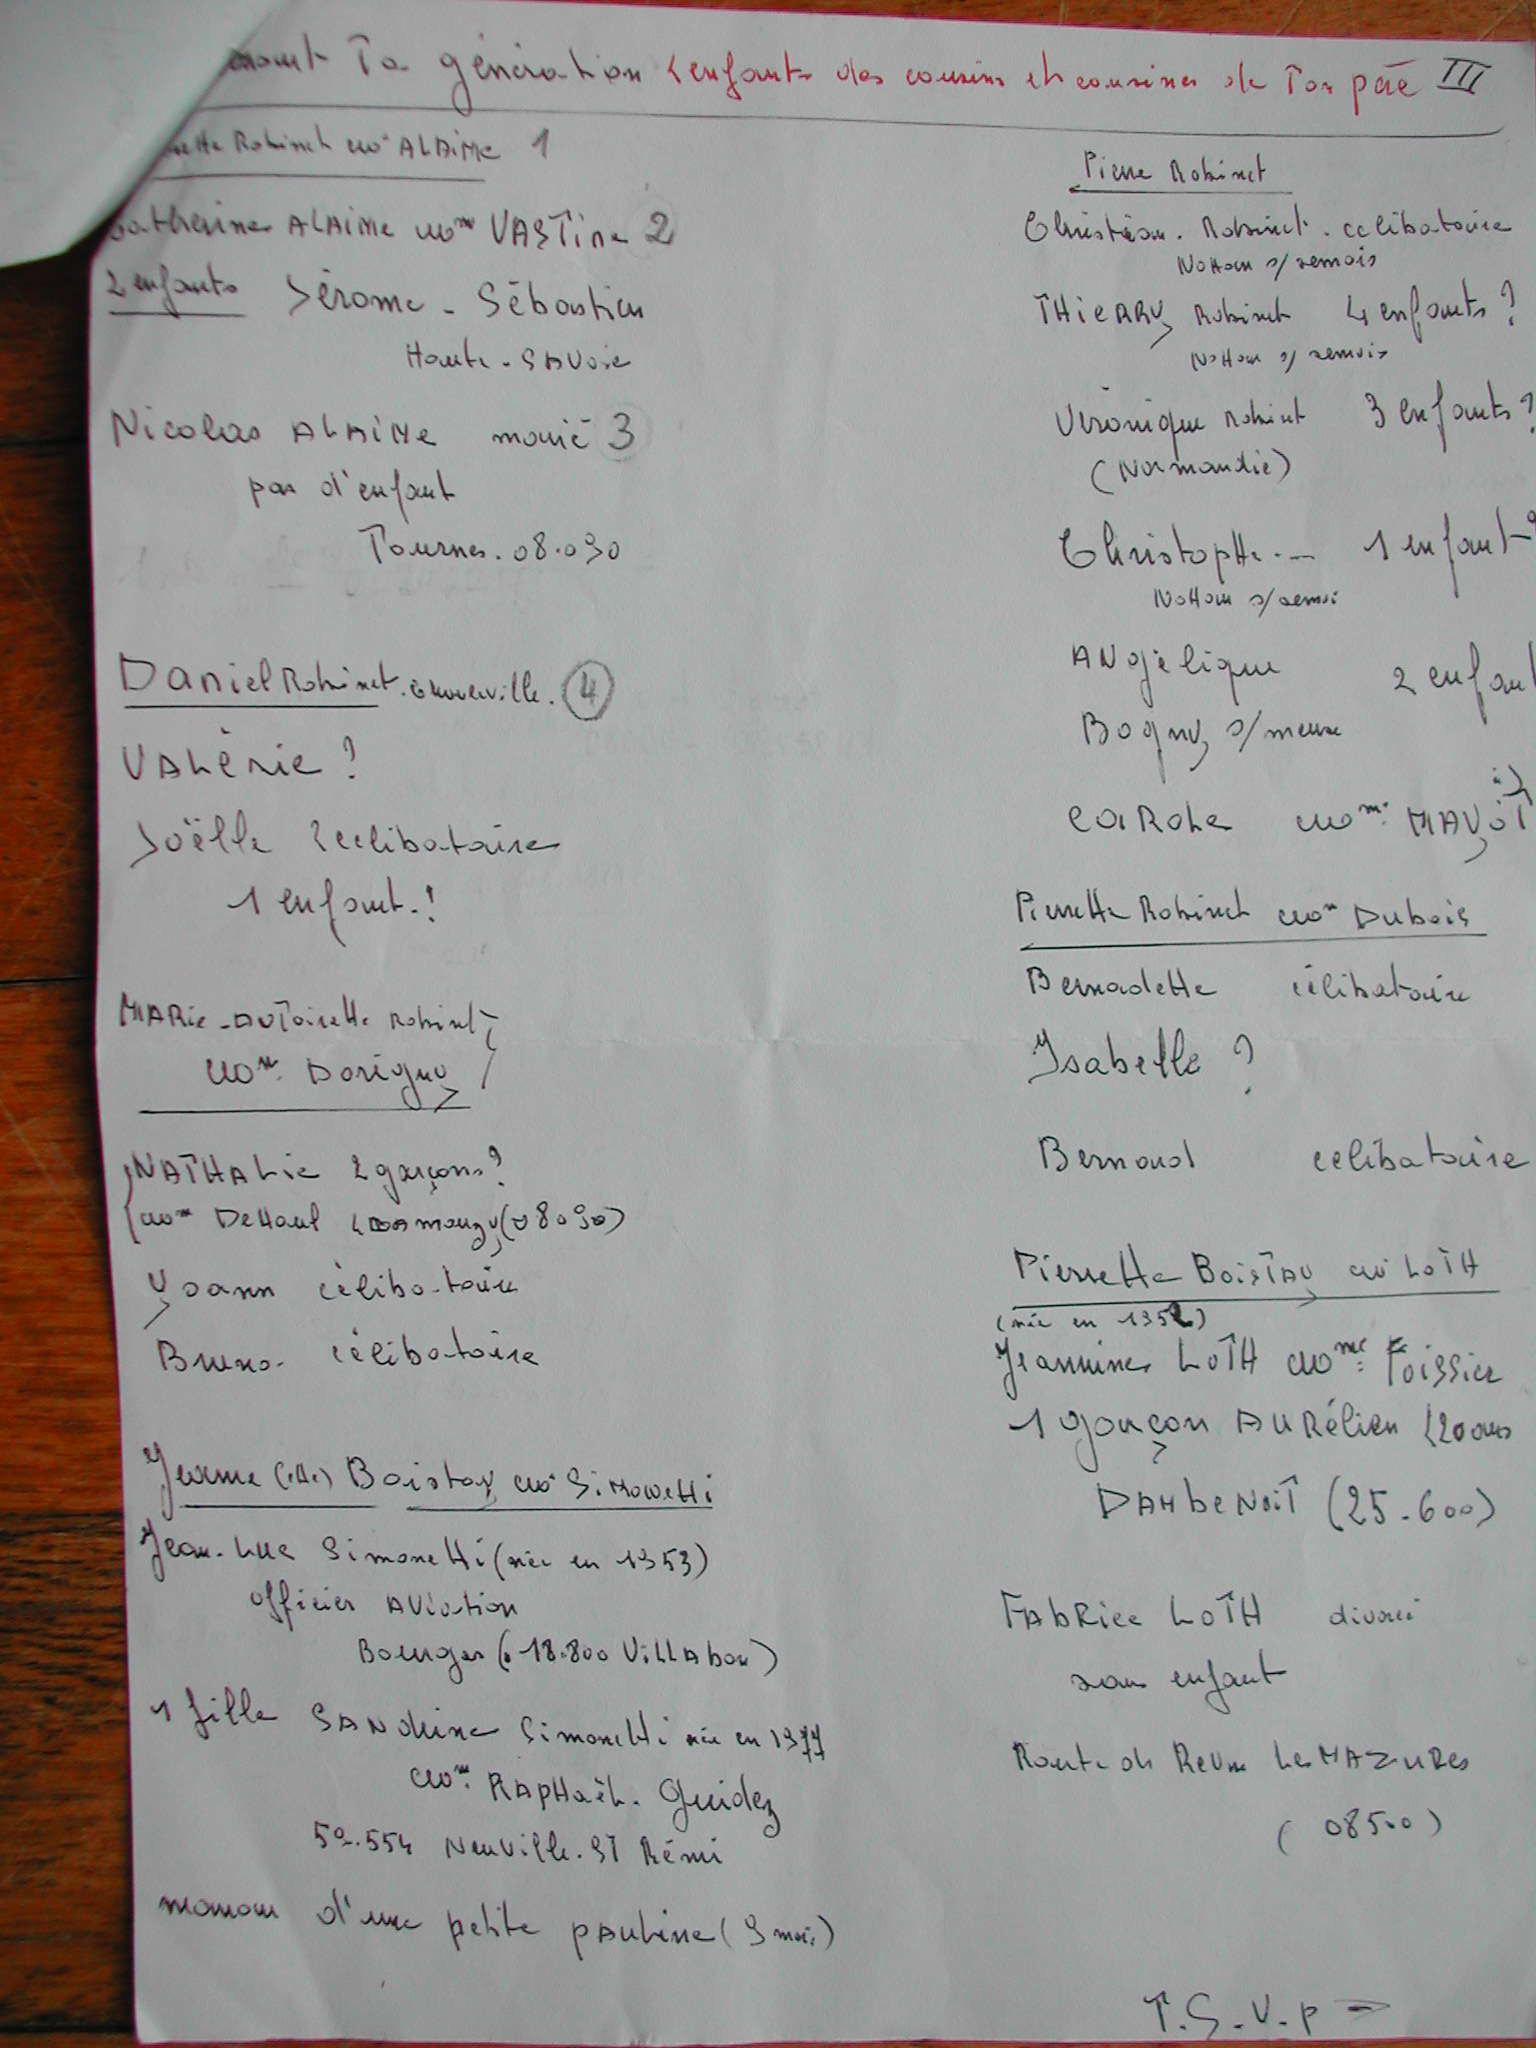 Ta génération (enfants des cousins et cousines de Ton père III
Robinet ALAIME 1
Catherine ALAIME VASTine 2
2 enfants Jérome - Sébastien
Haute-SAVoie
Nicolas ALAIME marié 3
pas d'enfant
Tournes. 08.090
Daniel Robinet. 4
VALérie ?
Joëlle célibataire
1 enfant.!
MARie-ANToinette Robinet
Dorigny
NATHALie 2 garçons?
DeHaul (08090)
Yoann célibataire
Bruno. célibataire
Jeanne Boistay Simonetti
Jean-Luc Simonetti (née en 1953)
officier AViation
Bourges (18.800 VILLAbon)
1 fille SANdrine Simonetti née en 1977
RAPHaëL. Guidez
59.554 NeuVille-ST Rémi
maman d'une petite PAuline (9 mois)
Pierre Robinet
Christian. Robinet. célibataire
NoHan s/semois
THieRRy Robinet 4 enfants ?
NoHan s/ semois
Véronique Robinet 3 enfants ?
(Normandie)
Christophe 1 enfant ?
NoHan s/semoi
ANgélique 2 enfant
Bogny s/meuse
CaRoLe
Pierrette Robinet Dubois
Bernadette célibataire
Ysabelle ?
Bernard célibataire
Pierrette BoisTAy LoTH
(née en 1952)
Jeannine LoTH Foissier
1 garçon AURélien (20 ans
DAMbeNoiT (25.600)
FAbRice LoTH divorcé
sans enfant
Route de Revin Les MAZuRes
(08500)
T.S.V.P